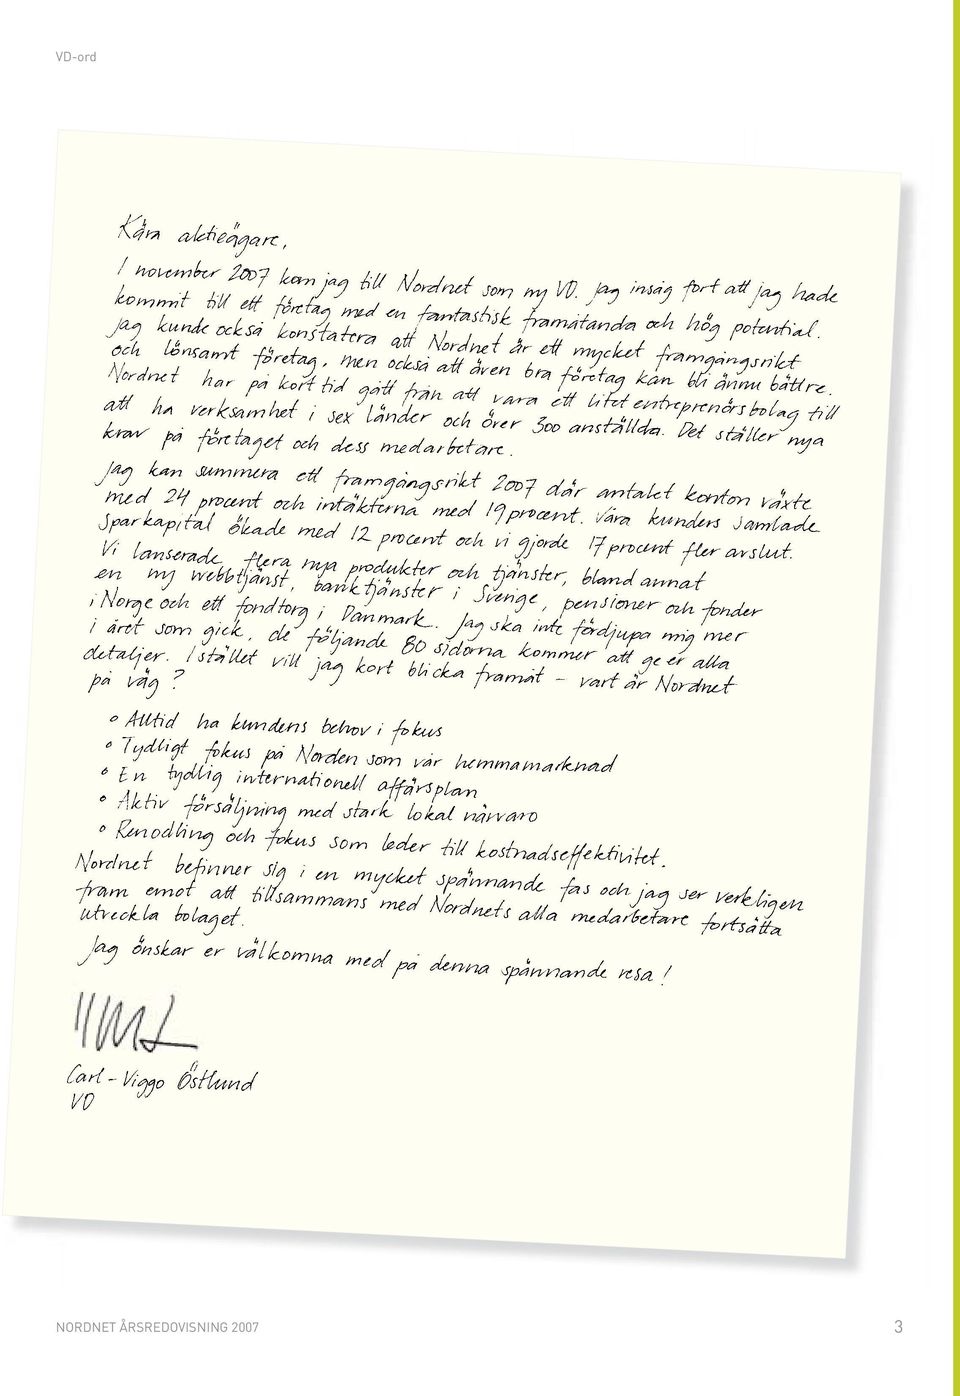 VD-ord
Kära aktieägare,
I november 2007 kom jag till Nordnet som ny VD. Jag insåg fort att jag hade
kommit till ett företag med en fantastisk framåtanda och hög potential.
Jag kunde också konstatera att Nordnet är ett mycket framgångsrikt
och lönsamt företag, men också att även bra företag kan bli ännu bättre.
Nordnet har på kort tid gått från att vara ett litet entreprenörsbolag till
att ha verksamhet i sex länder och över 300 anställda. Det ställer nya
krav på företaget och dess medarbetare.
Jag kan summera ett framgångsrikt 2007 där antalet konton växte
med 24 procent och intäkterna med 19 procent. Våra kunders samlade
sparkapital ökade med 12 procent och vi gjorde 17 procent fler avslut.
Vi lanserade flera nya produkter och tjänster, bland annat
en ny webbtjänst, banktjänster i Sverige, pensioner och fonder
i Norge och ett fondtorg i Danmark. Jag ska inte fördjupa mig mer
i året som gick, de följande 80 sidorna kommer att ge er alla
detaljer. Istället vill jag kort blicka framåt – vart är Nordnet
på väg?
° Alltid ha kundens behov i fokus
° Tydligt fokus på Norden som vår hemmamarknad
° En tydlig internationell affärsplan
° Aktiv försäljning med stark lokal närvaro
° Renodling och fokus som leder till kostnadseffektivitet.
Nordnet befinner sig i en mycket spännande fas och jag ser verkligen
fram emot att tillsammans med Nordnets alla medarbetare fortsätta
utveckla bolaget.
Jag önskar er välkomna med på denna spännande resa!
Carl-Viggo Östlund
VD
NORDNET ÅRSREDOVISNING 2007 3